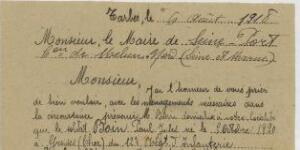 Tarbes, le 9 Août 1918
Monsieur, le Maire de Seine-Port
Con de Melun Nord (Seine & Marne)
Monsieur,
J'ai l'honneur de vous prier
de bien vouloir, avec les ménagements nécessaires dans
la circonstance prévenir la famille domiciliée à votre localité
que le soldat Boin Paul Jules né le 9 Octobre 1920
à du 123 Rgt d'Infanterie